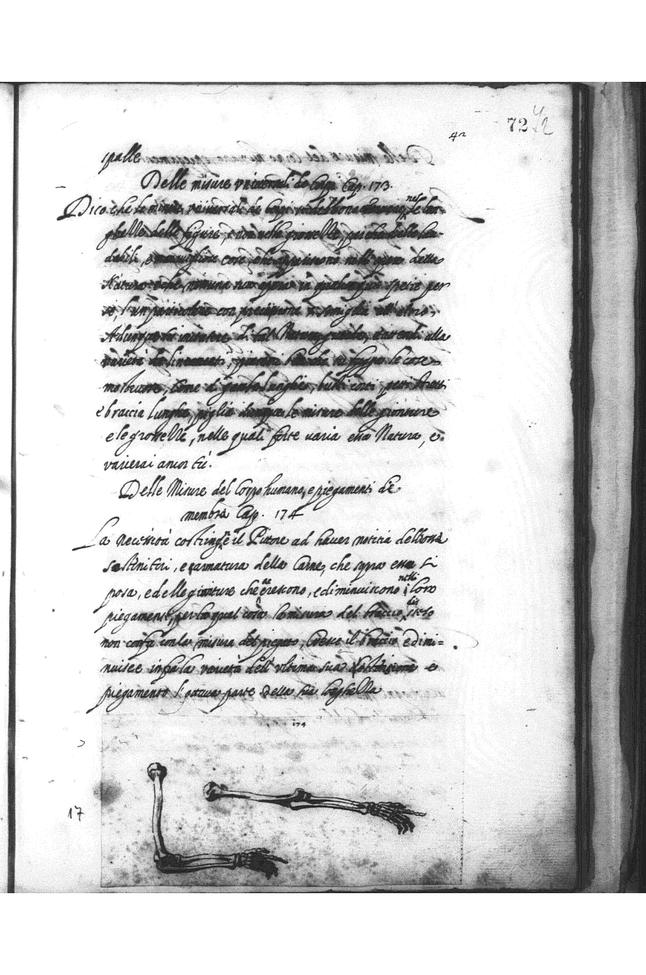 72
42
spalle
Delle misure universali de corpi Cap. 173.
Dico che le misure universali de corpi si debbono nelle lun-
ghezze delle figure, e non nelle grossezze, perche delle lau-
dabili, e maravigliose cose, che appariscono nell'opere della
Natura è che nissuna sua opera in qualunque specie per
se, l'un particolare con precisione si somiglia all'altro.
Adunque tu imitatore di tal Natura guarda, et attendi alla
varietà de lineamenti
mostruose, come di gambe lunghe, busti corti, petti stretti
e braccia lunghe, piglia dunque le misure delle gionture
e le grossezze, nelle quali forte varia essa Natura, e
varierai ancor tù.
Delle Misure del Corpo humano, e piegamenti de
membra Cap. 174
La necessità costringe il Pittore ad haver notitia dell'ossa
sostenitori, e armatura della Carne, che sopra essa si
posa, e delle gionture che crescono, e diminuiscono nelli loro
piegamenti, per la qual cosa la misura del braccio disteso
non confà con la misura del piegato, cresce il braccio e dimi-
nuisce infra la varietà dell'ultima sua e
piegamento l'ottava parte della sua longhezza
174
17